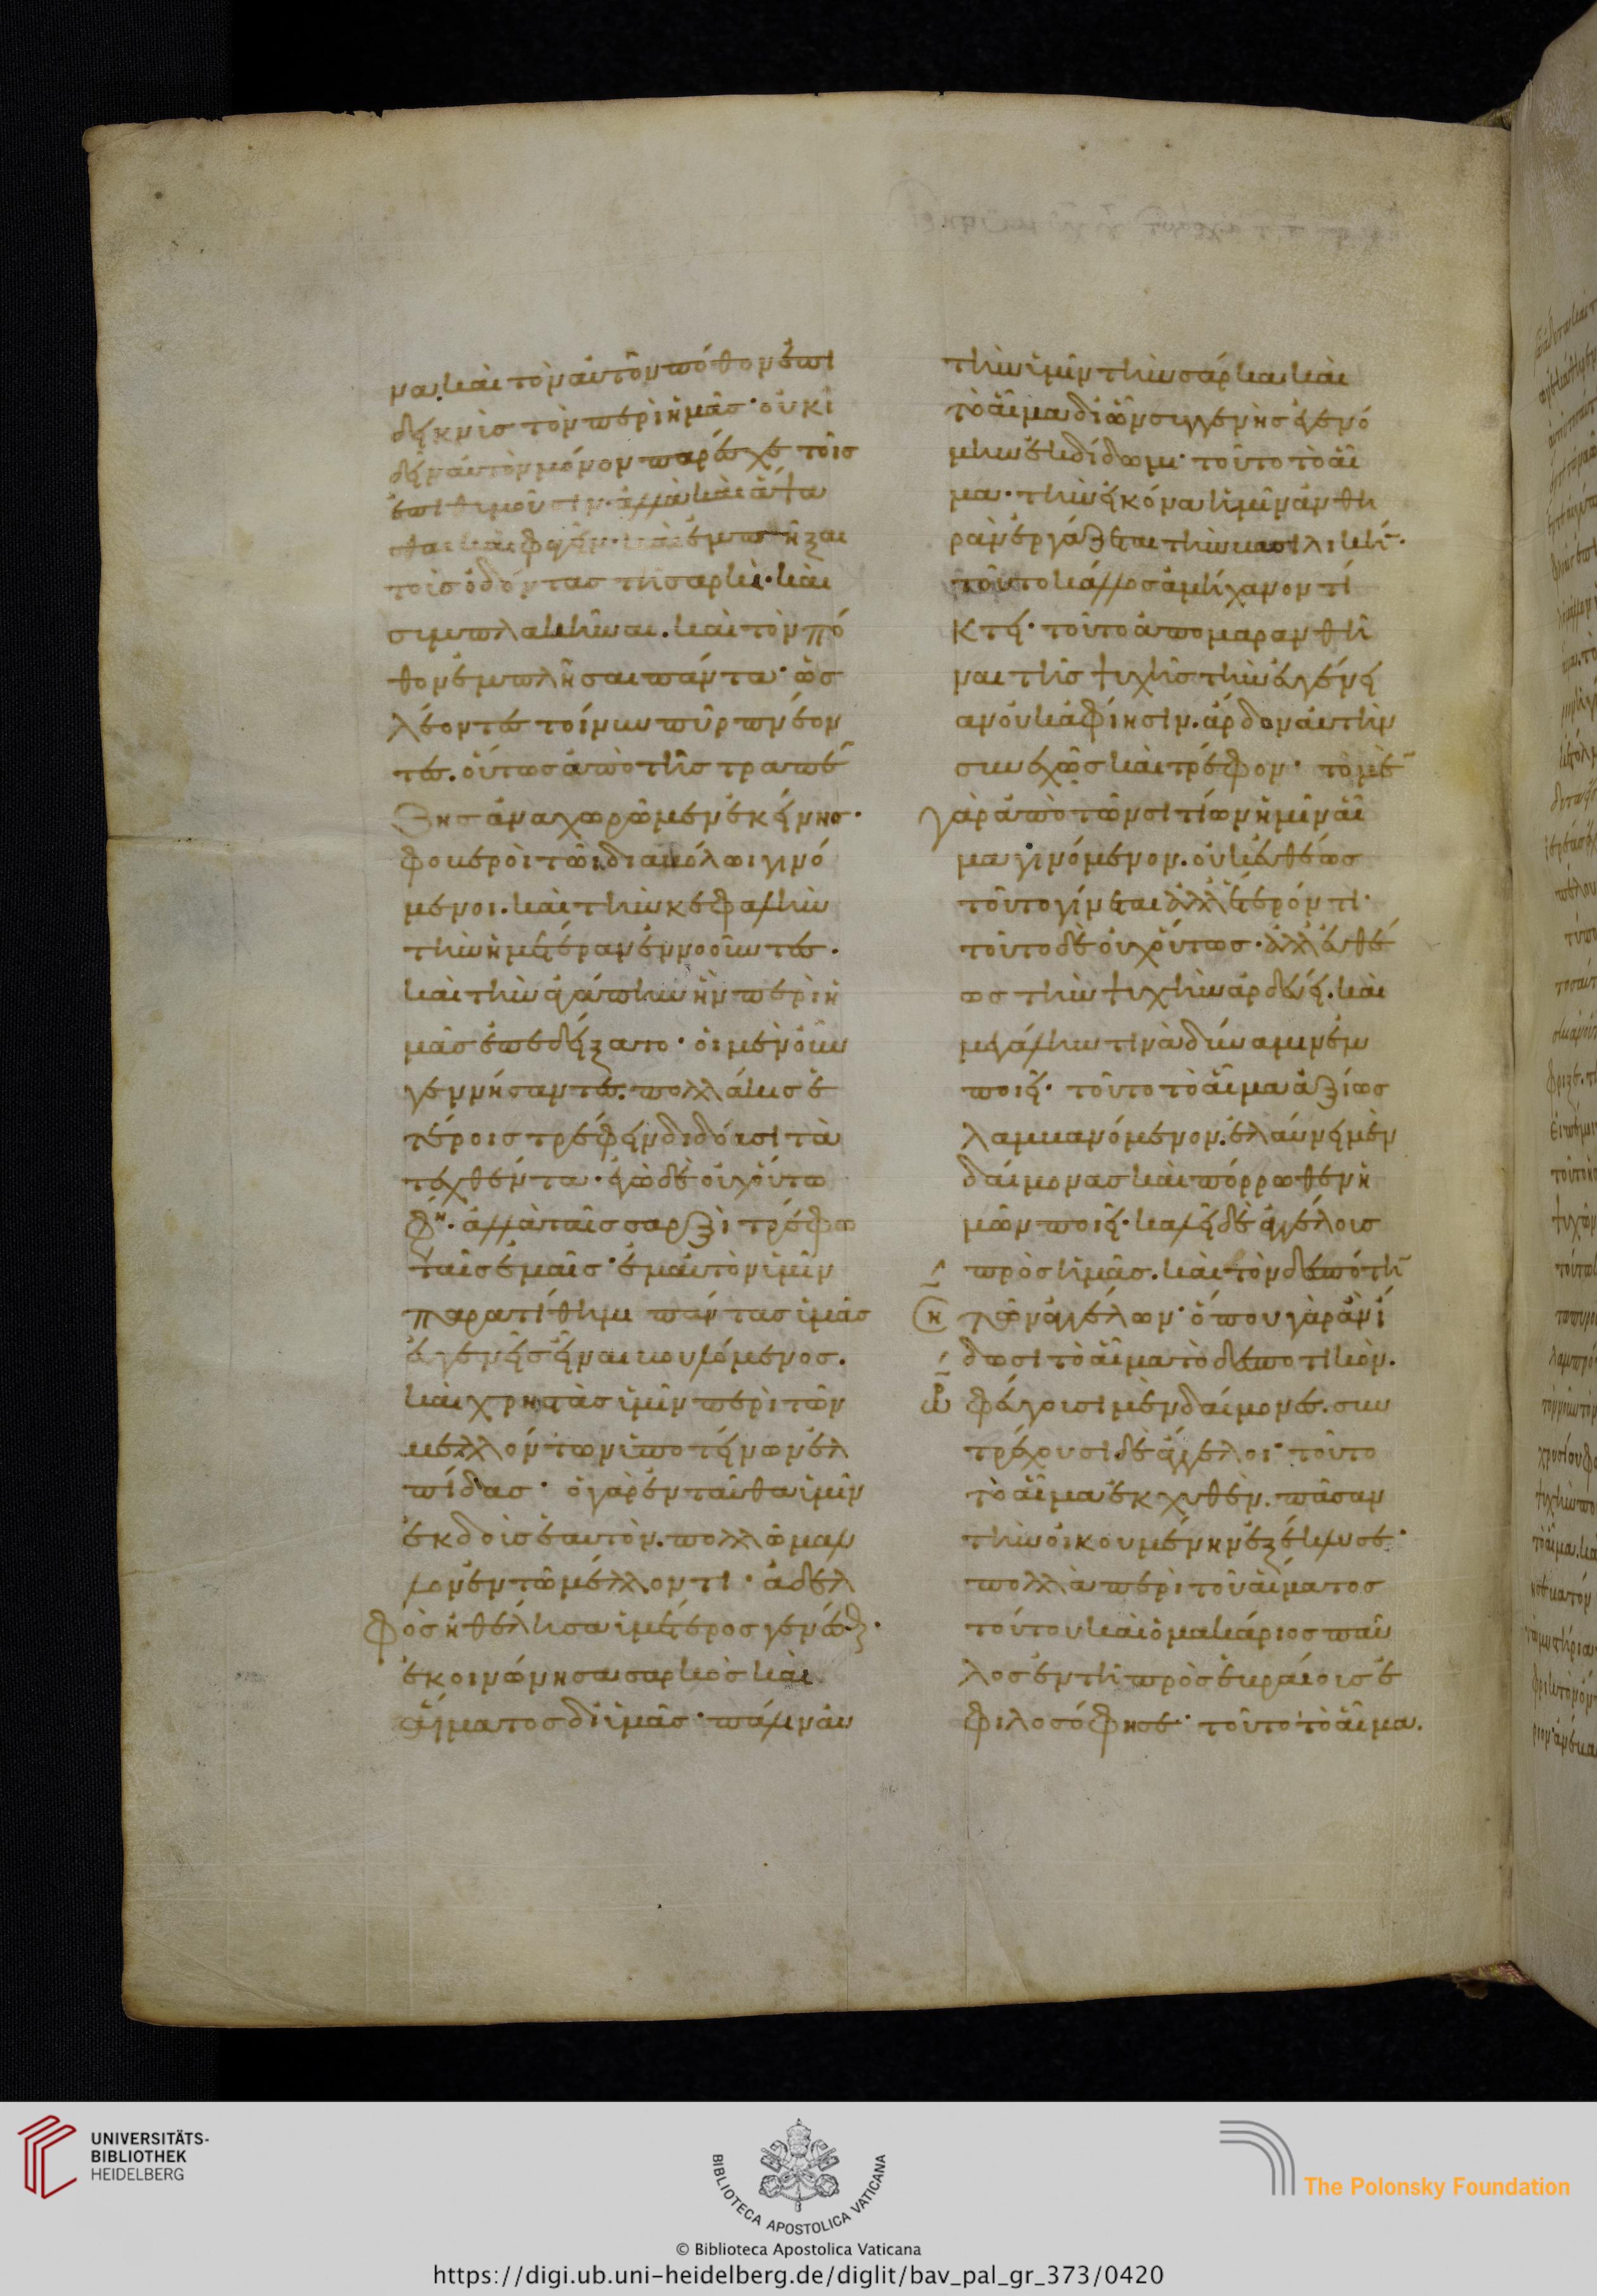 να. καὶ τὸν αὐτοῦ πόθον ἐπι
δεικνὺς τὸν περὶ ἡμᾶς· οὐκ ἰ
δεῖν αὐτὸν μόνον παρέσχε τοῖς
ἐπιθυμοῦσιν· ἀλλὰ καὶ ἅψα
σθαι καὶ φαγεῖν· καὶ ἐμπῆξαι
τοὺς ὀδόντας τῆ σαρκὶ· καὶ
συμπλακῆναι. καὶ τὸν πό
θον ἐμπλῆσαι πάντα· ὡς
λέοντες τοίνυν πῦρ πνέον
τες. οὕτως ἀπὸ τῆς τραπέ
ζης ἀναχωρῶμεν ἐκείνης·
φοβεροὶ τῶι διαβόλωι γινό
μενοι. καὶ τὴν κεφαλὴν
τὴν ἡμετέραν ἐννοοῦντες.
καὶ τὴν ἀγάπην ἣν περὶ ἡ
μᾶς ἐπεδείξατο· οἱ μὲν οὖν
γεννήσαντες. πολλάκις ἑ
τέροις τρέφειν διδόασι τὰ
τεχθέντα· ἐγὼ δὲ οὐχ οὕτω
φη· ἀλλὰ ταῖς σαρξὶ τρέφω
ταῖς ἐμαῖς· ἐμαυτὸν ὑμῖν
παρατίθημι πάντας ὑμᾶς
εὐγενεῖς εἶναι βουλόμενος.
καὶ χρηστὰς ὑμῖν περὶ τῶν
μελλόντων ὑποτείνων ἐλ
πίδας· ὁ γὰρ ἐνταῦθα ὑμῖν
ἐκδοὺς ἑαυτὸν. πολλῶ μᾶλ
λον ἐν τῶ μέλλοντι· ἀδελ
φὸς ἠθέλησα ὑμέτερος γενέσθ·
ἐκοινώνησα σαρκὸς καὶ
αἵματος δι ὑμᾶς· πάλιν αὐ
τὴν ὑμῖν τὴν σάρκα καὶ
τὸ αἷμα δι ὧν συγγενὴς ἐγενό
μην ἐκδίδωμι· τοῦτο τὸ αἷ
μα· τὴν εἰκόνα ὑμῖν ἀνθη
ρὰν ἐργάζεται τὴν βασιλικὴ·
τοῦτο κάλλος ἀμήχανον τί
κτει· τοῦτο ἀπομαρανθῆ
ναι τῆς ψυχῆς τὴν εὐγένει
αν οὐκ ἀφίησιν. ἄρδον αὐτὴν
συνεχῶς καὶ τρέφον· τὸ μὲ
γὰρ ἀπὸ τῶν σιτίων ἡμῖν αἷ
μα γινόμενον. οὐκ εὐθέως
τοῦτο γίνεται ἀλλ ἕτερόν τι·
τοῦτο δὲ οὐχ οὕτως· ἀλλ εὐθέ
ως τὴν ψυχὴν ἀρδεύει. καὶ
μεγάλην τινὰ δύναμιν ἐμ
ποιεῖ· τοῦτο τὸ αἷμα ἀξίως
λαμβανόμενον. ἐλαύνει μὲν
δαίμονας καὶ πόρρωθεν ἡ
μῶν ποιεῖ· καλεῖ δὲ ἀγγέλους
πρὸς ἡμᾶς. καὶ τὸν δεσπότη
τῶν ἀγγέλων· ὅπου γὰρ ἂν ἴ
δωσι τὸ αἷμα τὸ δεσποτικὸν.
φεύγουσι μὲν δαίμονες. συν
τρέχουσι δὲ ἄγγελοι· τοῦτο
τὸ αἷμα ἐκχυθὲν. πᾶσαν
τὴν οἰκουμένην ἐξέπλυσε·
πολλὰ περὶ τοῦ αἵματος
τούτου καὶ ὁ μακάριος παῦ
λος ἐν τῆ πρὸς ἑβραίους ἐ
φιλοσόφησε· τοῦτο τὸ αἷμα.
UNIVERSITÄTS-
BIBLIOTHEK
HEIDELBERG
BIBLIOTECA APOSTOLICA VATICANA
The Polonsky Foundation
© Biblioteca Apostolica Vaticana
https://digi.ub.uni-heidelberg.de/diglit/bav_pal_gr_373/0420